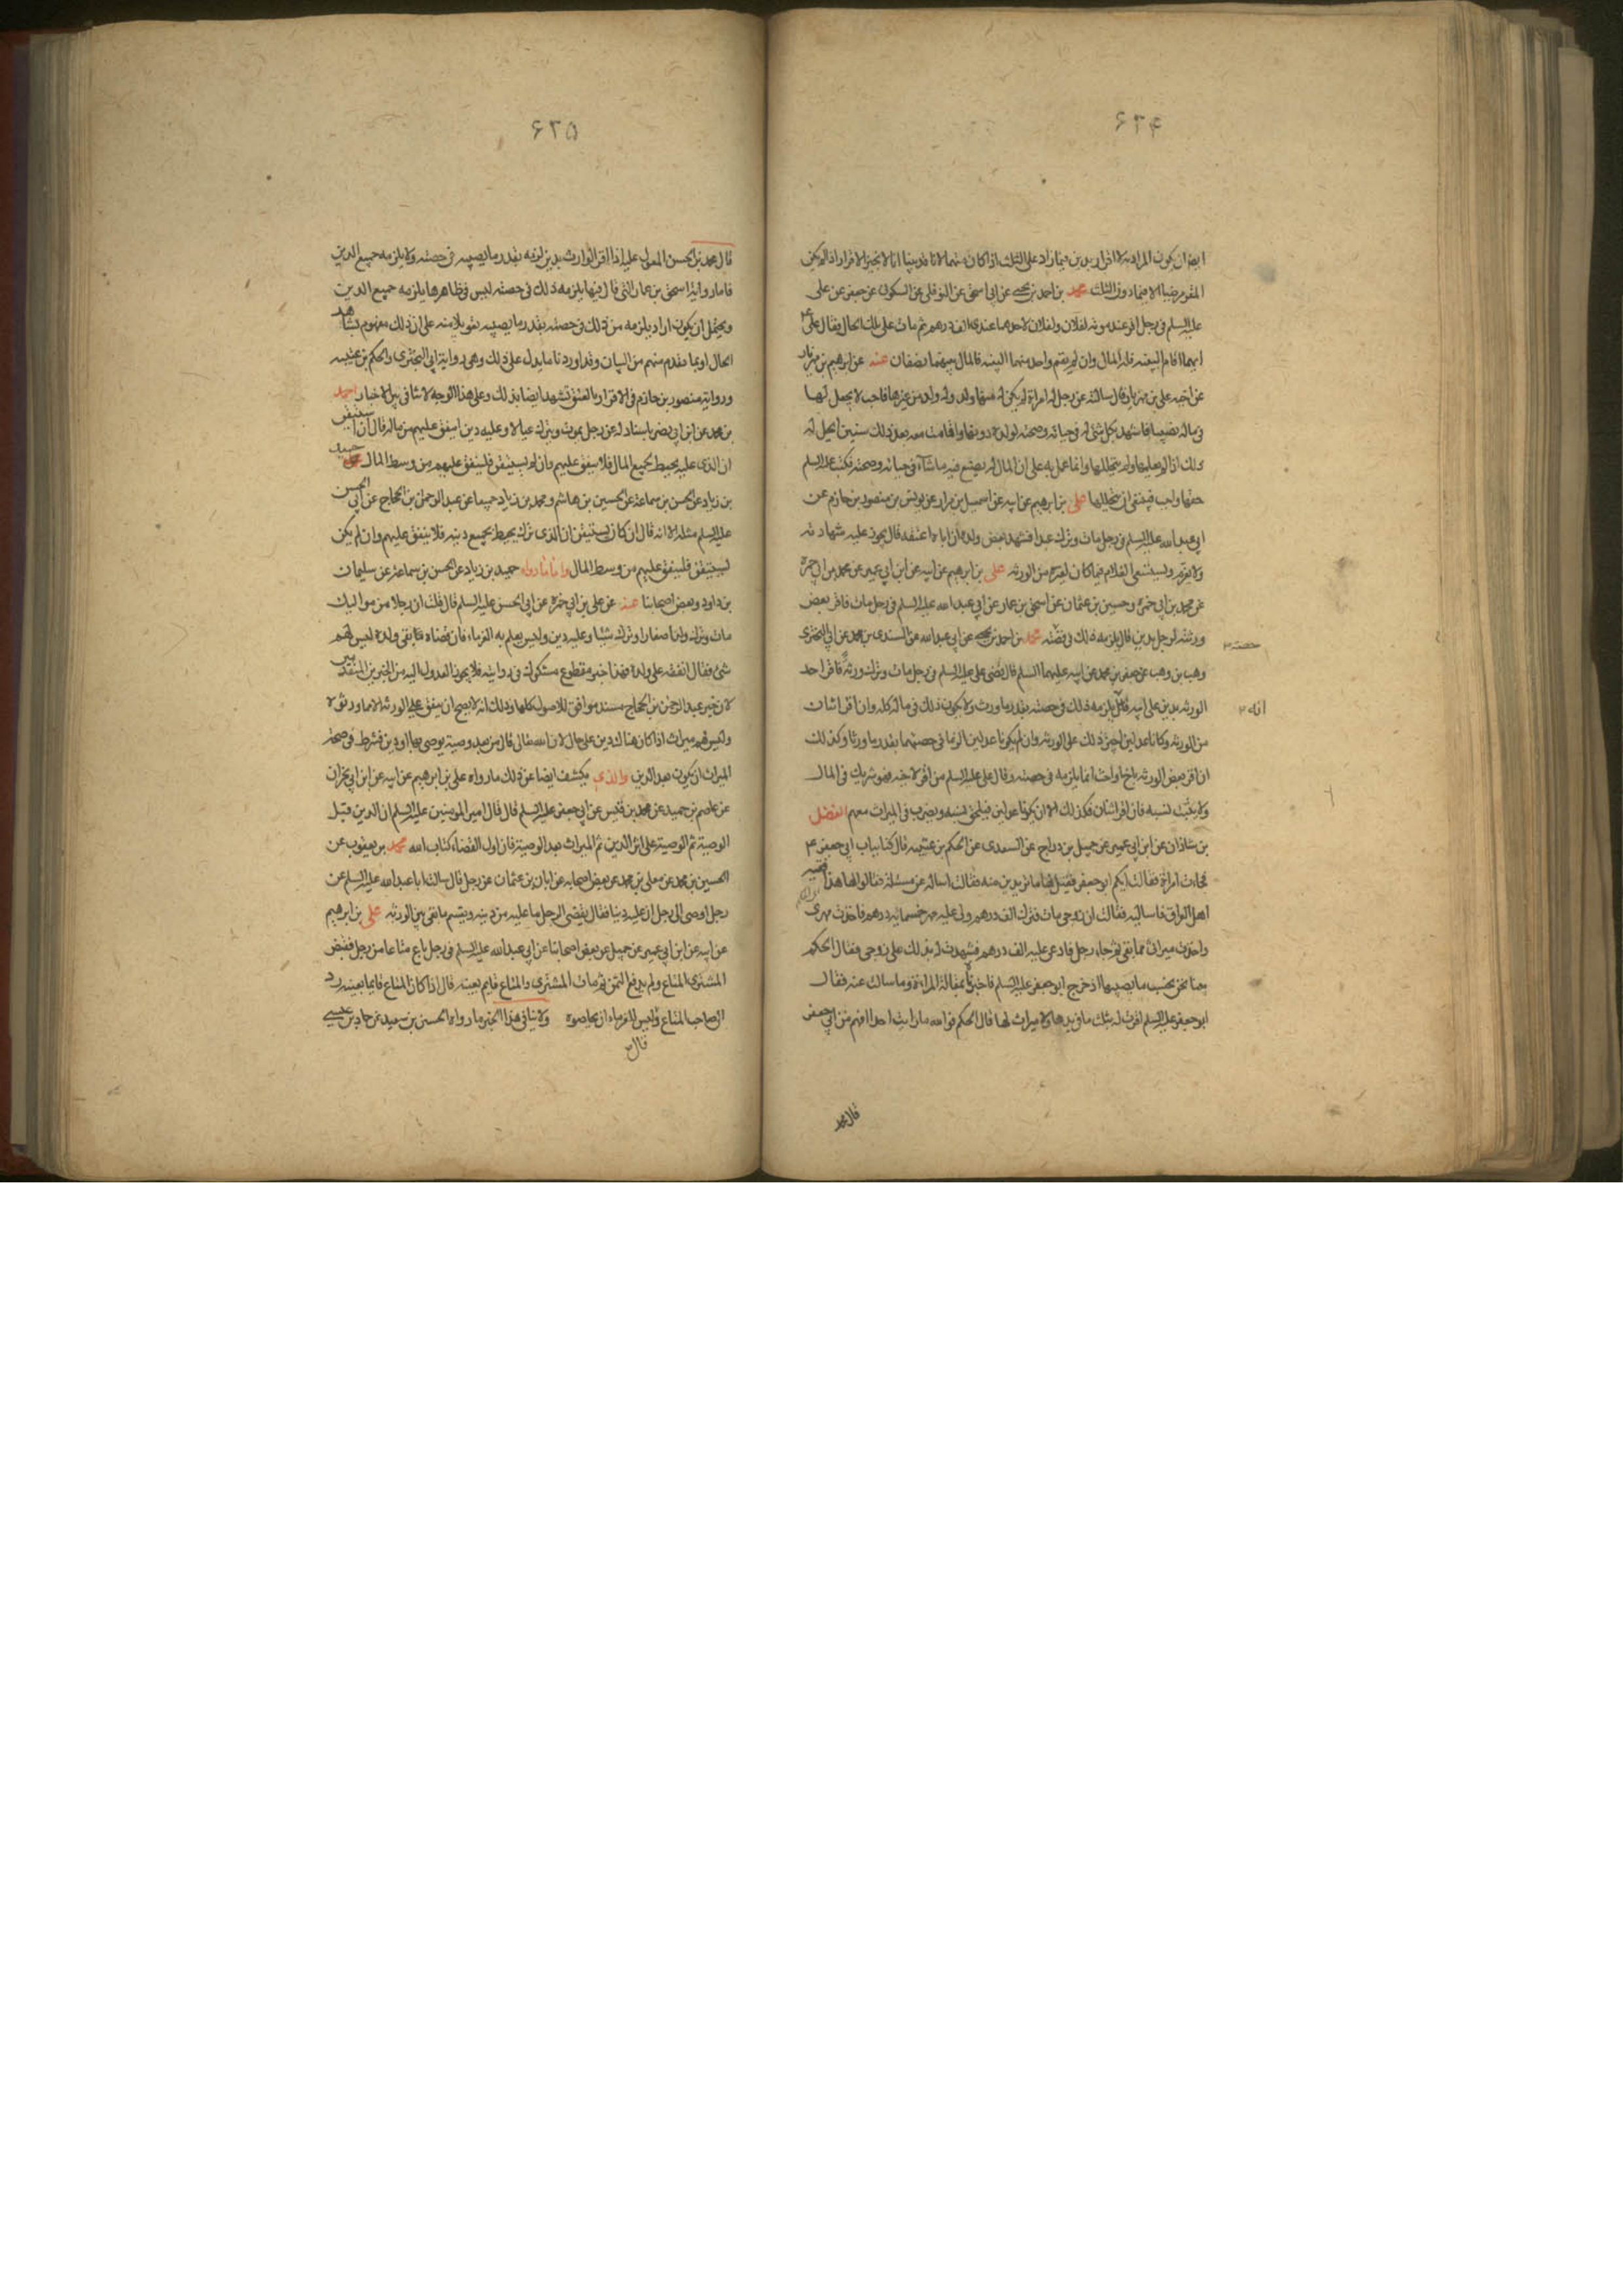 ٦٢۴
ايضا ان يكون المراد به لا اقرار بدين فيما زاد على الثلث اذا كان متهما لانا قد بينا انا لا نجيز الاقرار اذا لم يكن
المقر مرضيا الا فيما دون الثلث محمد بن احمد بن يحيى عن ابي اسحق عن النوفلي عن السكوني عن جعفر عن علي
عليه السلم في رجل اقر عند موته لفلان ولفلان لاحدهما عندي الف درهم ثم مات على تلك الحال فقال علي ع
ايهما اقام البينه فله المال وان لم يقم واحد منهما البينه فالمال بينهما نصفان عنه عن ابرهيم بن مهزيار
عن اخيه علي بن مهزيار قال سالته عن رجل له امراة لم يكن له منها ولد وله ولد من غيرها فاحب لا يجعل لها
في ماله نصيبا فاشهد بكل شئ له في حياته وصحته لولده دونها واقامت معه بعد ذلك سنين ايحل له
ذلك اذا لم يعلمها ولم يتحللها وانما عمل به على ان المال له يصنع فيه ما شآء في حياته وصحته فكتب عليه السلم
حقها واجب فينبغي ان يتحللها علي بن ابرهيم عن ابيه عن اسمعيل بن مرار عن يونس بن منصور بن حازم عن
ابي عبد الله عليه السلم في رجل مات وترك عبدا فشهد بعض ولده ان اباه اعتقه قال يجوز عليه شهادته
ولا يغرم ويستسعى الغلام فيما كان لغيره من الورثه علي بن ابرهيم عن ابيه عن ابن ابي عمير عن محمد بن ابي حمزة
عن محمد بن ابي حمزه وحسين بن عثمان عن اسحق بن عمار عن ابي عبد الله عليه السلم في رجل مات فاقر بعض
ورثته لرجل بدين قال يلزمه ذلك في حصته محمد بن احمد بن يحيى عن ابي عبد الله عن السندي بن محمد عن ابي البختري
حصته ٢
وهب بن وهب عن جعفر بن محمد عن ابيه عليهما السلم قال قضى علي عليه السلم في رجل مات وترك ورثة فاقر احد
الورثه بدين على ابيه قال يلزمه ذلك في حصته بقدر ما ورث ولا يكون ذلك في ماله كله وان اقر اثنان
انه ٢
من الورثه وكانا عدلين اجيز ذلك على الورثه وان لم يكونا عدلين الزما في حصتهما بقدر ما ورثا وكذلك
ان اقر بعض الورثه باخ او اخت انما يلزمه في حصته وقال علي عليه السلم من اقر لاخيه فهو شريك في المال
ولا يثبت نسبه فان اقر اثنان فكذلك الا ان يكونا عدلين فيلحق نسبه ويضرب في الميراث معهم الفضل
بن شاذان عن ابن ابي عمير عن جميل بن دراج عن السعدي عن الحكم بن عتيبه قال كنا بباب ابي جعفر ع
فجاءت امراة فقالت ايكم ابو جعفر فقيل لها ما تريدين منه فقالت اساله عن مسئلة فقالوا لها هذا فقيه
اهل العراق فاساليه فقالت ان زوجي مات فترك الف درهم ولي عليه مهر خمسمائه درهم فاخذت مهري
واخذت ميراثي مما بقي ثم جاء رجل فادعى عليه الف درهم فشهدت له بذلك على زوجي فقال الحكم
بينا نحن نحسب ما يصيبها اذ خرج ابو جعفر عليه السلم فاخبرناه بمقالة المراة وما سالت عنه فقال
ابو جعفر عليه السلم اقرت له بثلث ما في يدها ولا ميراث لها قال الحكم فو الله ما رايت احدا افهم من ابي جعفر
قال محمد
٦٢۵
قال محمد بن الحسن المعول عليه اذا اقر الوارث بدين لزمه بقدر ما يصيبه في حصته ولا يلزمه جميع الدين
فاما رواية اسحق بن عمار التي قال فيها يلزمه ذلك في حصته ليس في ظاهرها يلزمه جميع الدين
ويحتمل ان يكون اراد يلزمه من ذلك في حصته بقدر ما يصيبه تعويلا منه على ان ذلك مفهوم بشاهد
الحال او بما تقدم منهم من البيان وقد اوردنا ما يدل على ذلك وهي رواية ابي البختري والحكم بن عتيبه
ورواية منصور بن حازم في الاقرار بالعتق تشهد ايضا بذلك وعلى هذا الوجه لا تنافي بين الاخبار احمد
بن محمد عن ابن ابي نصر باسناد له عن رجل يموت ويترك عيالا وعليه دين اينفق عليهم من ماله قال ان استيقن
ان الذي عليه يحيط بجميع المال فلا ينفق عليهم وان لم يستيقن فلينفق عليهم من وسط المال حميد
بن زياد عن الحسن بن سماعة عن الحسين بن هاشم ومحمد بن زياد جميعا عن عبد الرحمن بن الحجاج عن ابي الحسن
عليه السلم مثله الا انه قال ان كان يستيقن ان الذي ترك يحيط بجميع دينه فلا ينفق عليهم وان لم يكن
يستيقن فلينفق عليهم من وسط المال واما ما رواه حميد بن زياد عن الحسن بن سماعة عن سليمان
بن داود وبعض اصحابنا عنه عن علي بن ابي حمزه عن ابي الحسن عليه السلم قال قلت ان رجلا من مواليك
مات وترك ولدا صغارا وترك شيئا وعليه دين وليس يعلم به الغرماء فان قضاه فابقى ولده ليس لهم
شئ فقال انفقه على ولده فهذا خبر مقطوع مشكوك في روايته فلا يجوز العدول اليه من الخبرين المتقدمين
لان خبر عبد الرحمن بن الحجاج مسند موافق للاصول كلها وذلك انه لا يصح ان ينفق على الورثه الا ما ورثوه
وليس لهم ميراث اذا كان هناك دين على حال لان الله تعالى قال من بعد وصية يوصي بها او دين فشرط في صحة
الميراث ان يكون بعد الدين والذي يكشف ايضا عن ذلك ما رواه علي بن ابرهيم عن ابيه عن ابن ابي نجران
عن عاصم بن حميد عن محمد بن قيس عن ابي جعفر عليه السلم قال قال امير المومنين عليه السلم ان الدين قبل
الوصية ثم الوصية على اثر الدين ثم الميراث بعد الوصية فان اول القضاء كتاب الله محمد بن يعقوب عن
الحسين بن محمد عن معلى بن محمد عن بعض اصحابه عن ابان بن عثمان عن رجل قال سالت ابا عبد الله عليه السلم عن
رجل اوصى الى رجل ان عليه دينا فقال يقضي الرجل ما عليه من دينه ويقسم ما بقي بين الورثه علي بن ابرهيم
عن ابيه عن ابن ابي عمير عن جميل عن بعض اصحابنا عن ابي عبد الله عليه السلم في رجل باع متاعا من رجل فقبض
المشتري المتاع ولم يدفع الثمن ثم مات المشتري والمتاع قايم بعينه قال اذا كان المتاع قايما بعينه رد
الى صاحب المتاع وليس للغرماء ان يحاصوه ولا ينافي هذا الخبر ما رواه الحسين بن سعيد عن حماد بن عيسى
قال